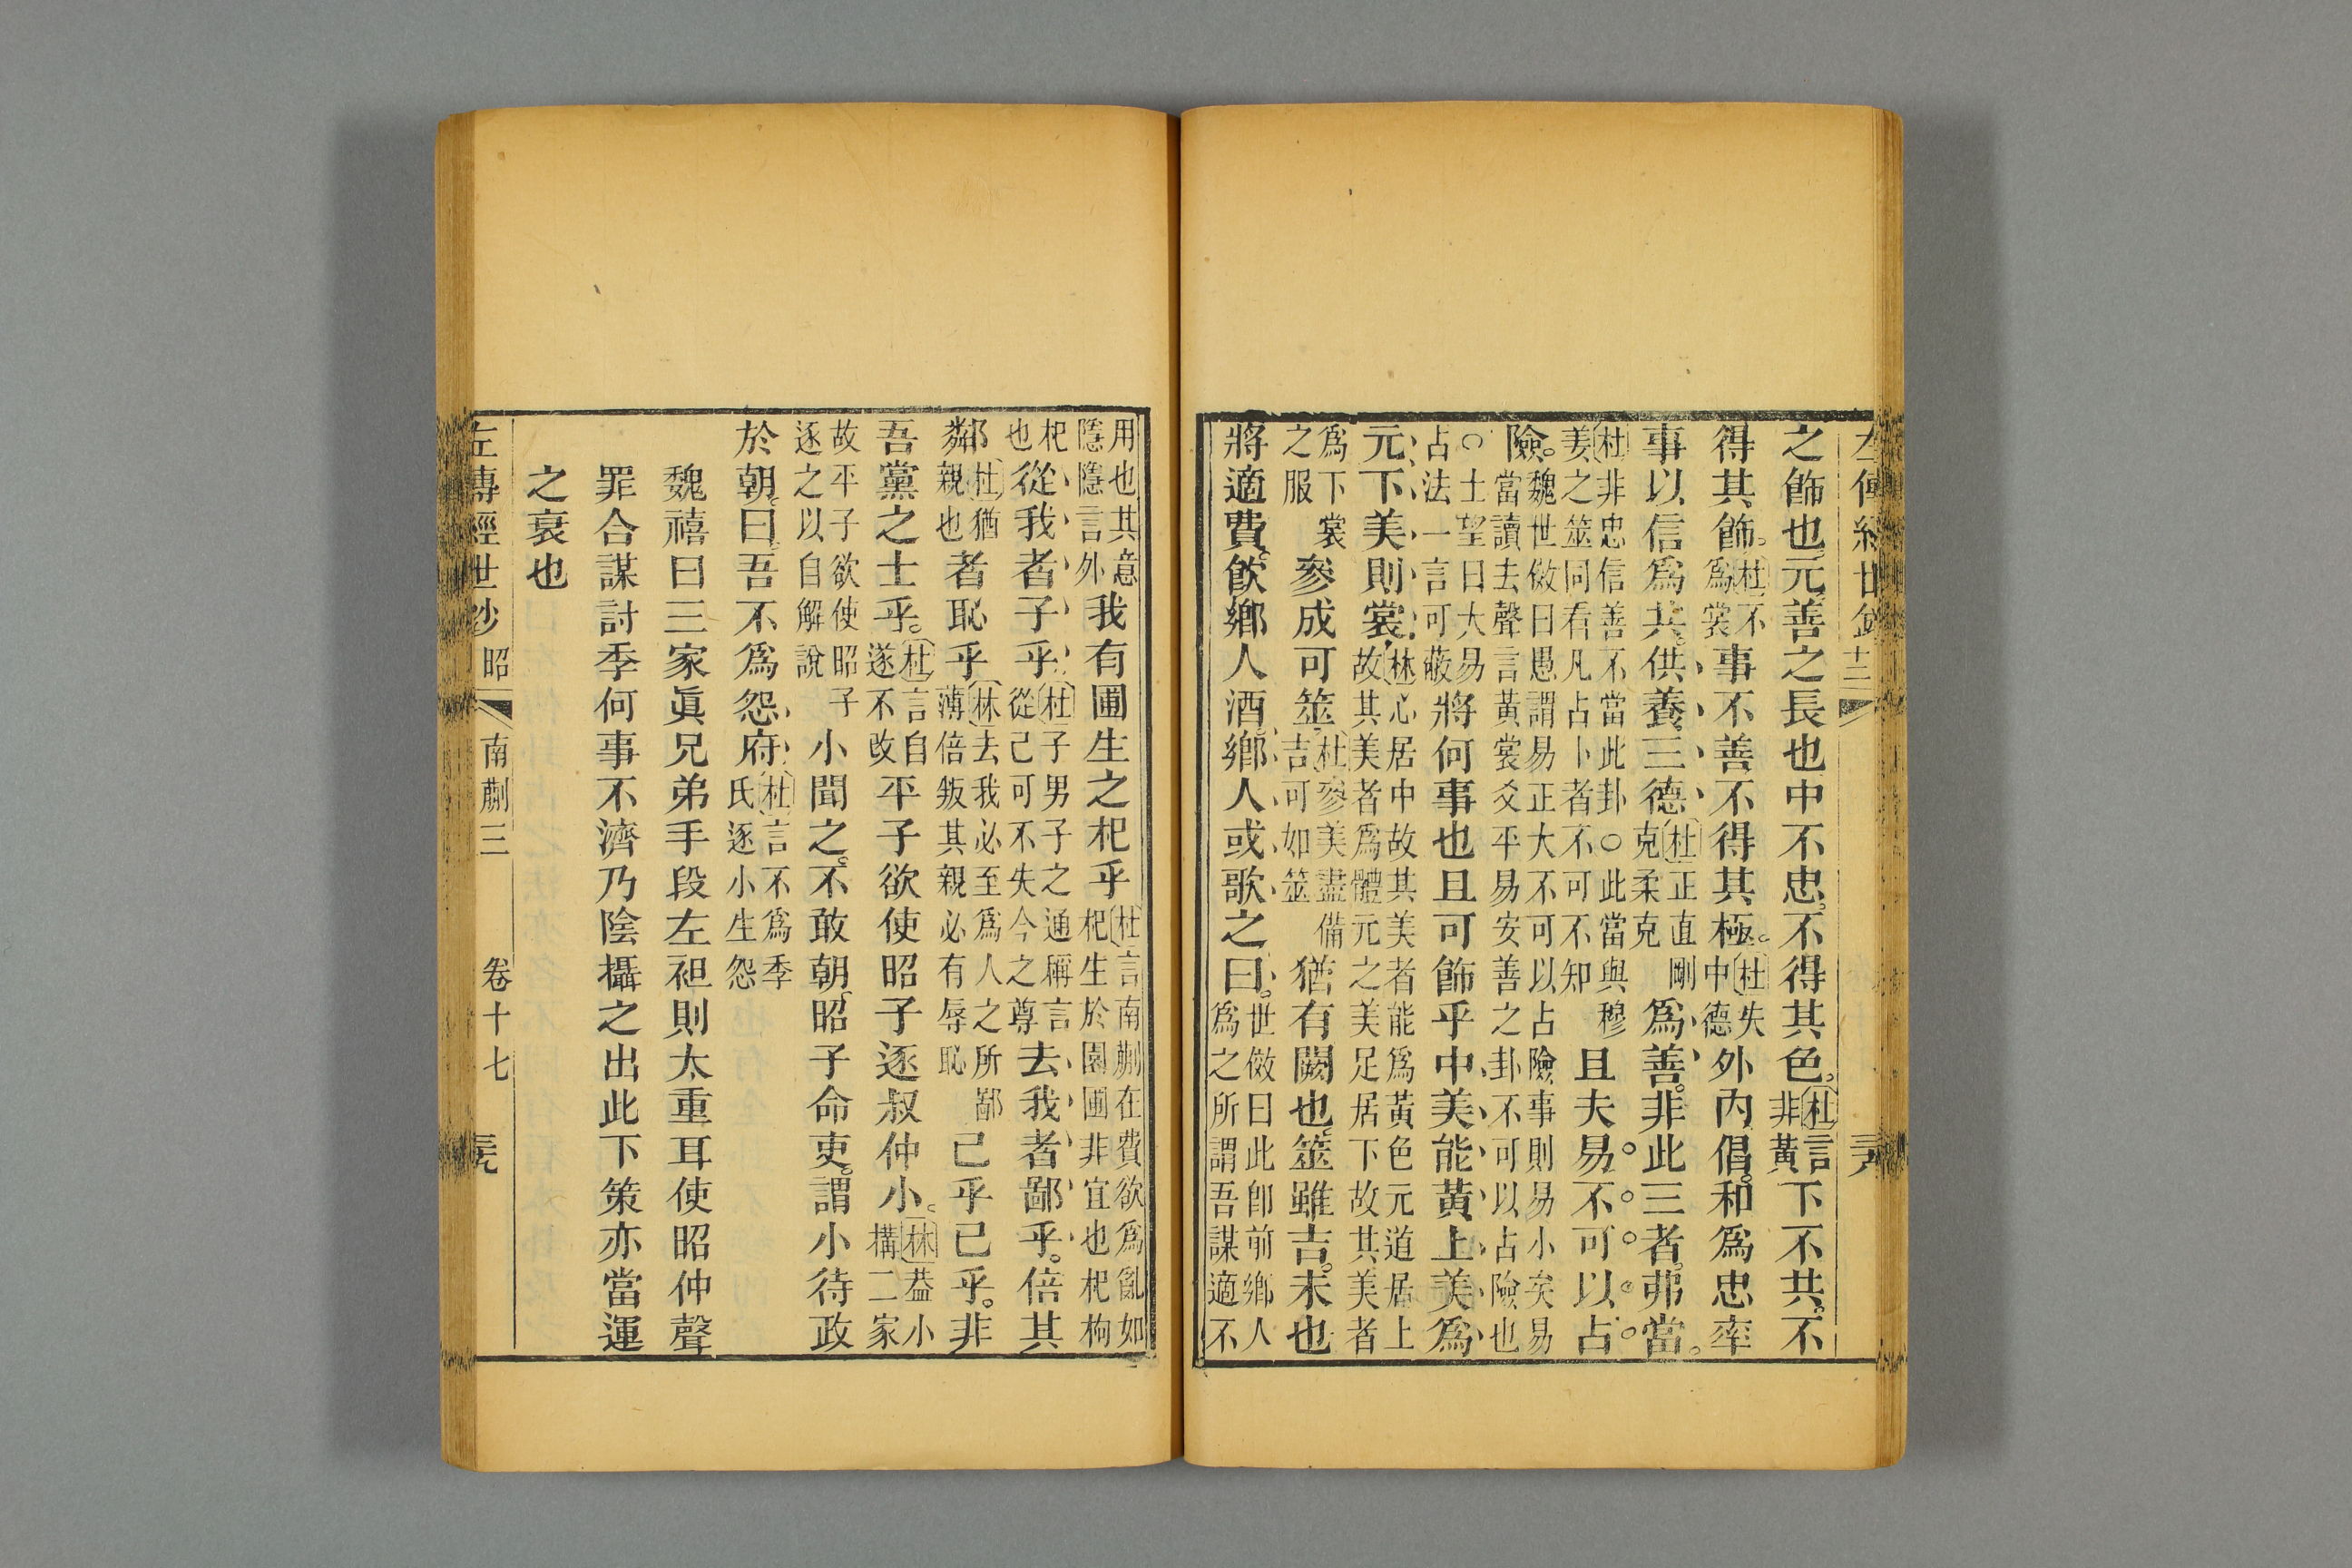 之飾也元善之長也中不忠不得其色杜言非黃下不共不
得其飾杜不爲裳事不善不得其極杜失中德外內倡和爲忠率
事以信爲共供養三德杜正直剛克柔克爲善非此三者弗當
杜非忠信善不當此卦○此當與穆姜之筮同看凡占卜者不可不知且夫易不可以占
險魏世傚曰愚謂易正大不可以占險事則易小矣易當讀去聲言黃裳爻平易安善之卦不可以占險也
○士望曰大易占法一言可蔽將何事也且可飾乎中美能黃上美爲
元下美則裳林心居中故其美者能爲黃色元道居上故其美者爲體元之美足居下故其美者
爲下裳之服參成可筮杜參美盡備吉可如筮猶有闕也筮雖吉未也
將適費飲鄉人酒鄉人或歌之曰世傚曰此卽前鄉人爲之所謂吾謀適不
用也其意隱隱言外我有圃生之杞乎杜言南蒯在費欲爲亂如杞生於園圃非宜也杞枸
杞也從我者子乎杜子男子之通稱言從己可不失今之尊去我者鄙乎倍其
鄰杜猶親也者恥乎林去我必至爲人之所鄙薄倍叛其親必有辱恥已乎已乎非
吾黨之士乎杜言自遂不改平子欲使昭子逐叔仲小林葢小構二家
故平子欲使昭子逐之以自解說小聞之不敢朝昭子命吏謂小待政
於朝曰吾不爲怨府杜言不爲季氏逐小生怨
魏禧曰三家眞兄弟手段左袒則太重耳使昭仲聲
罪合謀討季何事不濟乃陰攝之出此下策亦當運
之衰也
左傳經世鈔 昭 南蒯三 卷十七